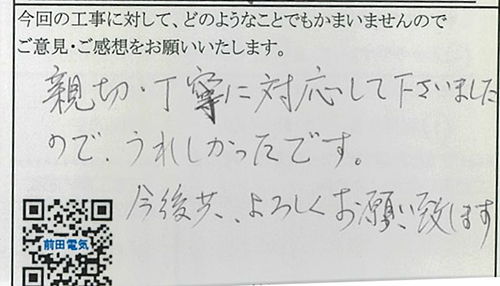 今回の工事に対して、どのようなことでもかまいませんので
ご意見・ご感想をお願いいたします。
親切・丁寧に対応して下さいました
ので、うれしかったです。
今後共、よろしくお願い致します
前田電気